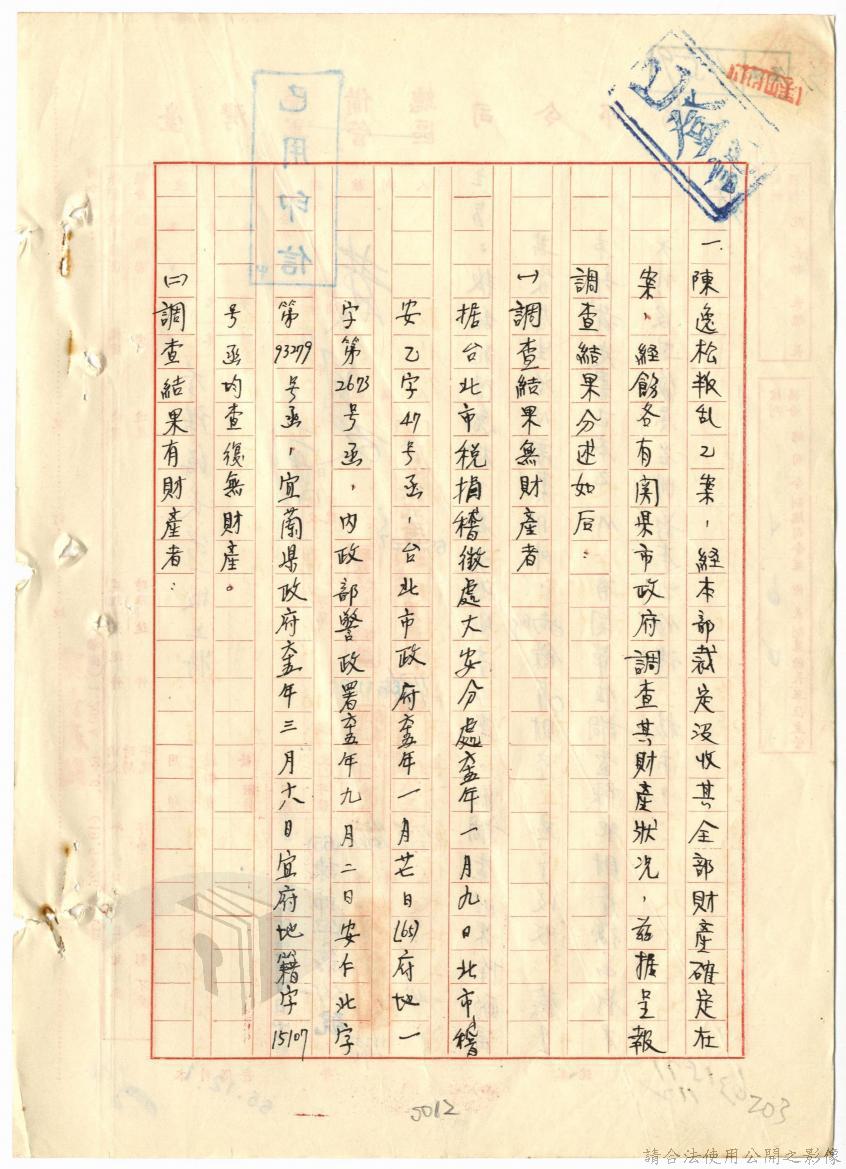 已用印信
一、陳逸松叛乱乙案，經本部裁定沒收其全部財產確定在
案，經飭各有関県市政府調查其財產狀况，茲据呈報
調查結果分述如后：
㈠調查結果無財產者
据台北市稅捐稽徵處大安分處六五年一月九日北市稽
安乙字47号函，台北市政府六五年一月廿日(65)府地一
字第2673号函，內政部警政署六五年九月二日安仁北字
第93279号函，宜蘭県政府六五年三月十八日宜府地籍字15107
号函均查復無財產。
㈡調查結果有財產者：
0012
203
請合法使用公開之影像